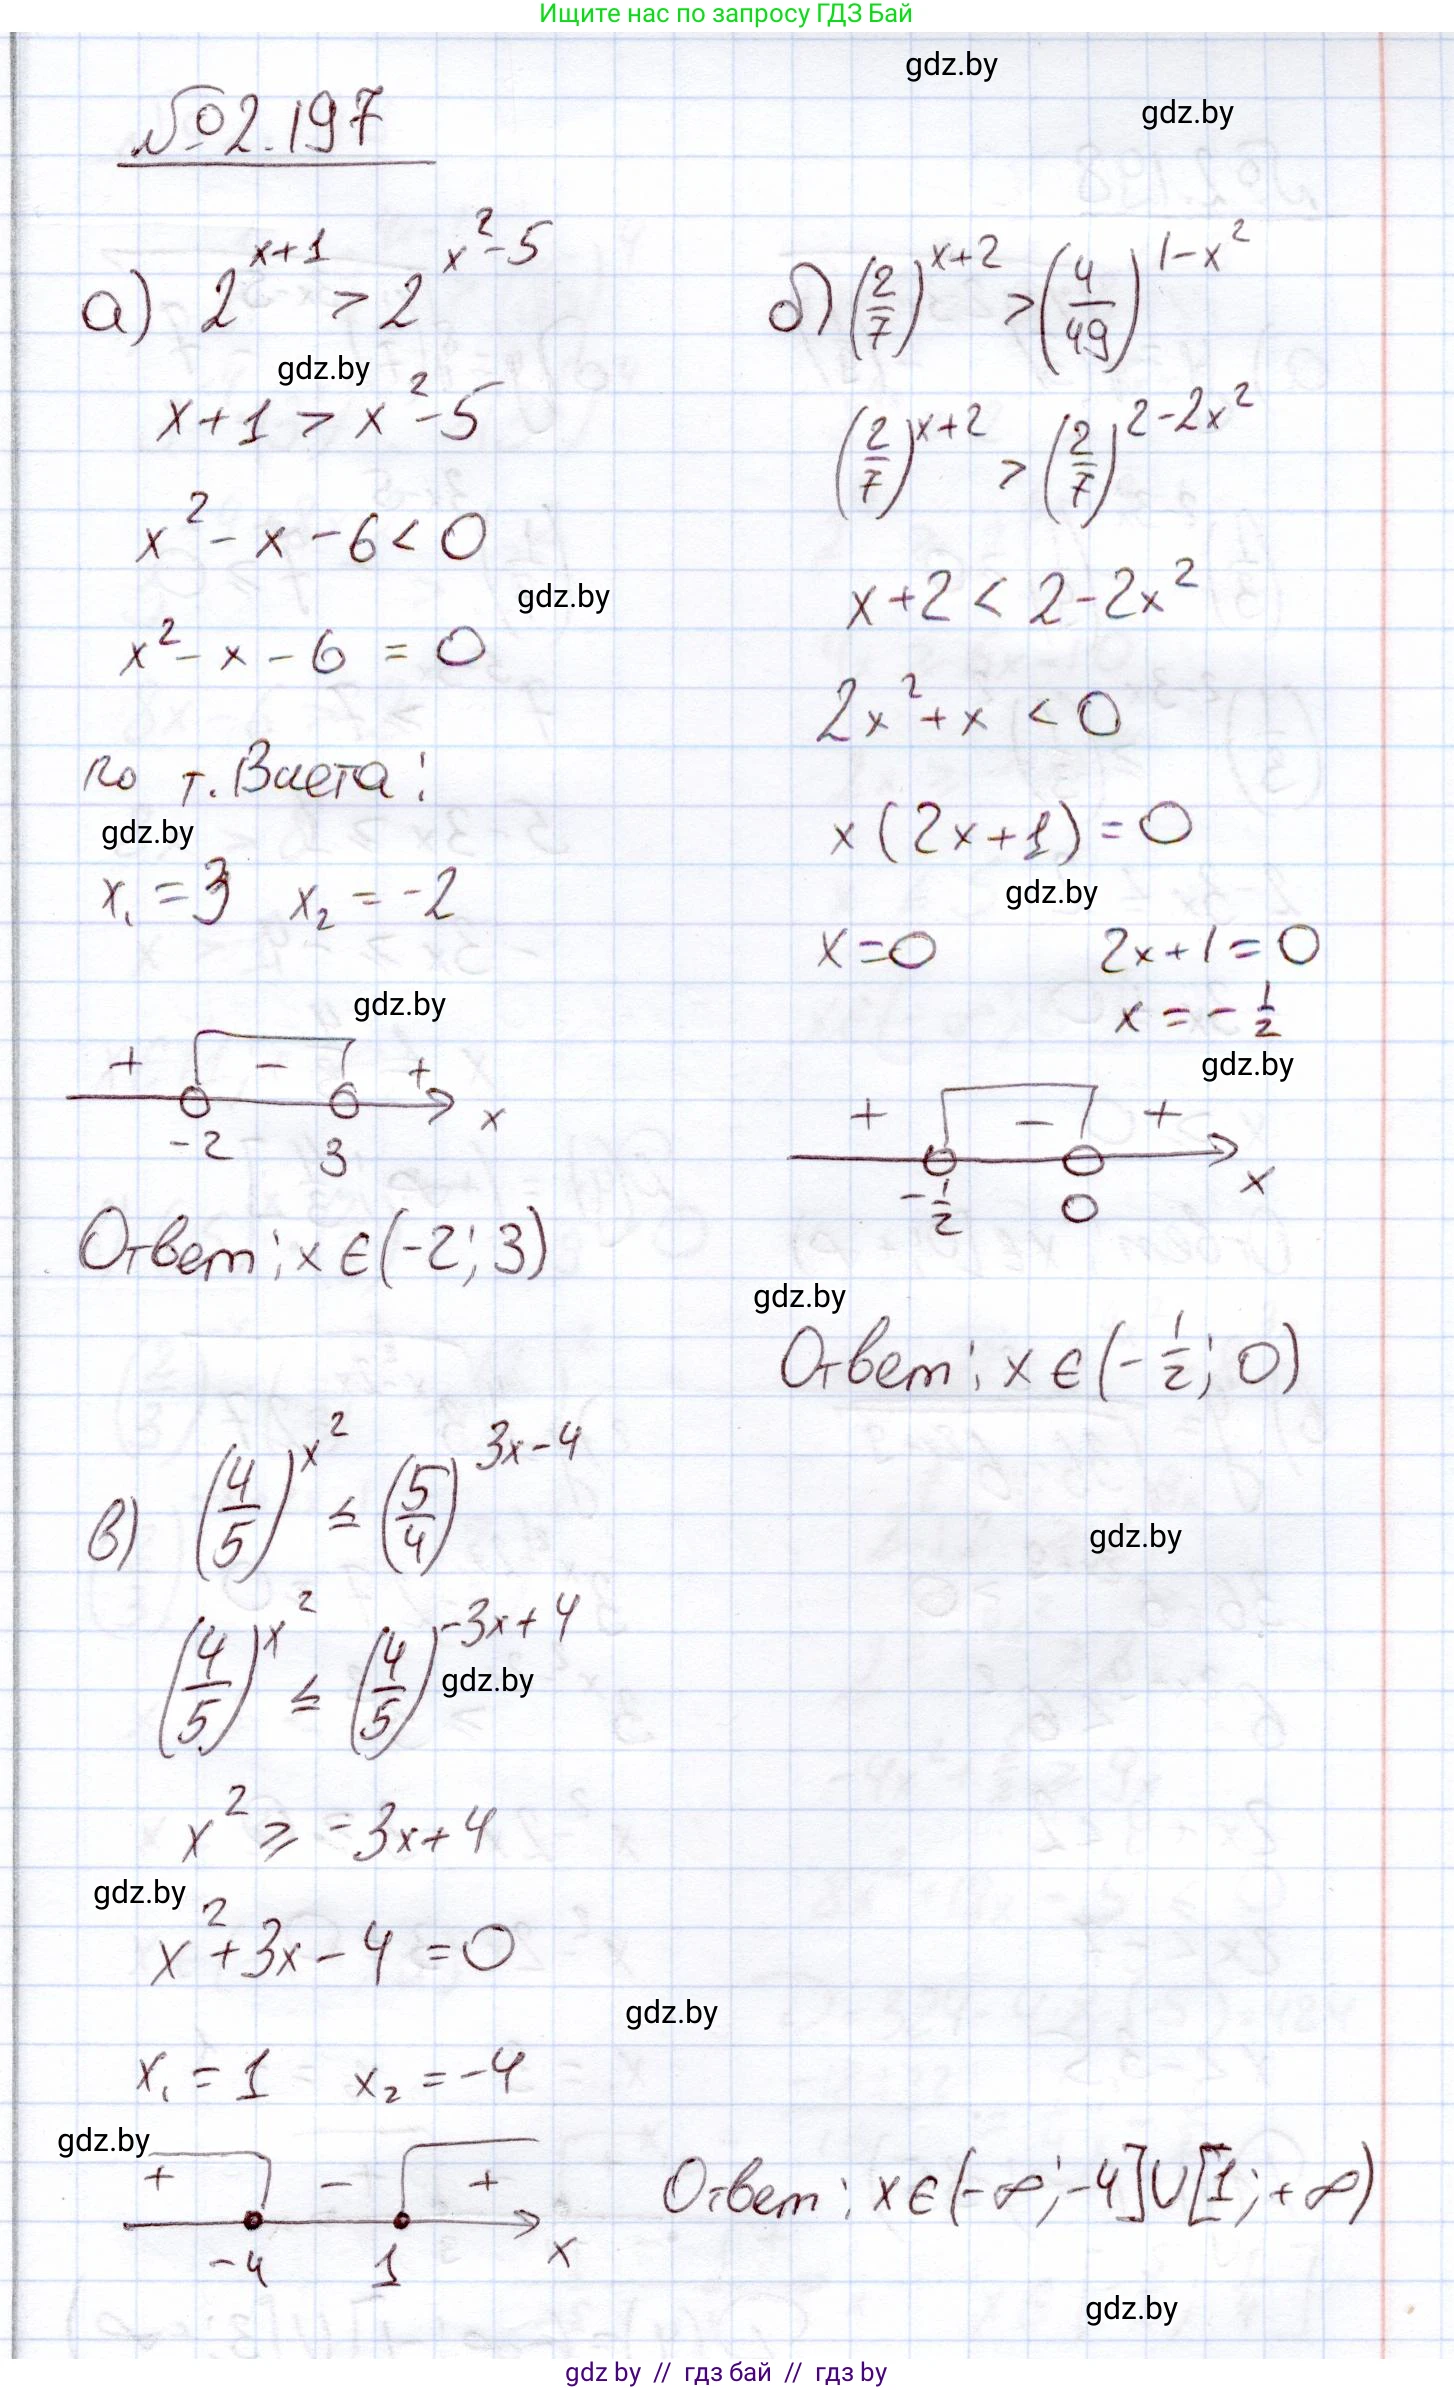 Ищите нас по запросу ГДЗ Бай
gdz.by
gdz.by
№2.197
а) 2^{x+1} > 2^{x²-5}
gdz.by
x+1 > x²-5
x²-x-6<0
gdz.by
x²-x-6=0
по т. Виета:
gdz.by
x₁=3 x₂=-2
gdz.by
+ - + x
-2 3
Ответ: x∈(-2; 3)
б) (2/7)^{x+2} > (4/49)^{1-x²}
(2/7)^{x+2} > (2/7)^{2-2x²}
x+2 < 2-2x²
2x²+x < 0
x(2x+1)=0
gdz.by
x=0 2x+1=0
x=-1/2
gdz.by
+ - + x
-1/2 0
gdz.by
Ответ: x∈(-1/2; 0)
gdz.by
в) (4/5)^{x²} ≤ (5/4)^{3x-4}
(4/5)^{x²} ≤ (4/5)^{-3x+4}
gdz.by
x² ≥ -3x+4
gdz.by
x²+3x-4=0
gdz.by
x₁=1 x₂=-4
gdz.by
+ - + x
-4 1
Ответ: x∈(-∞;-4]∪[1;+∞)
gdz.by
gdz by // гдз бай // гдз by